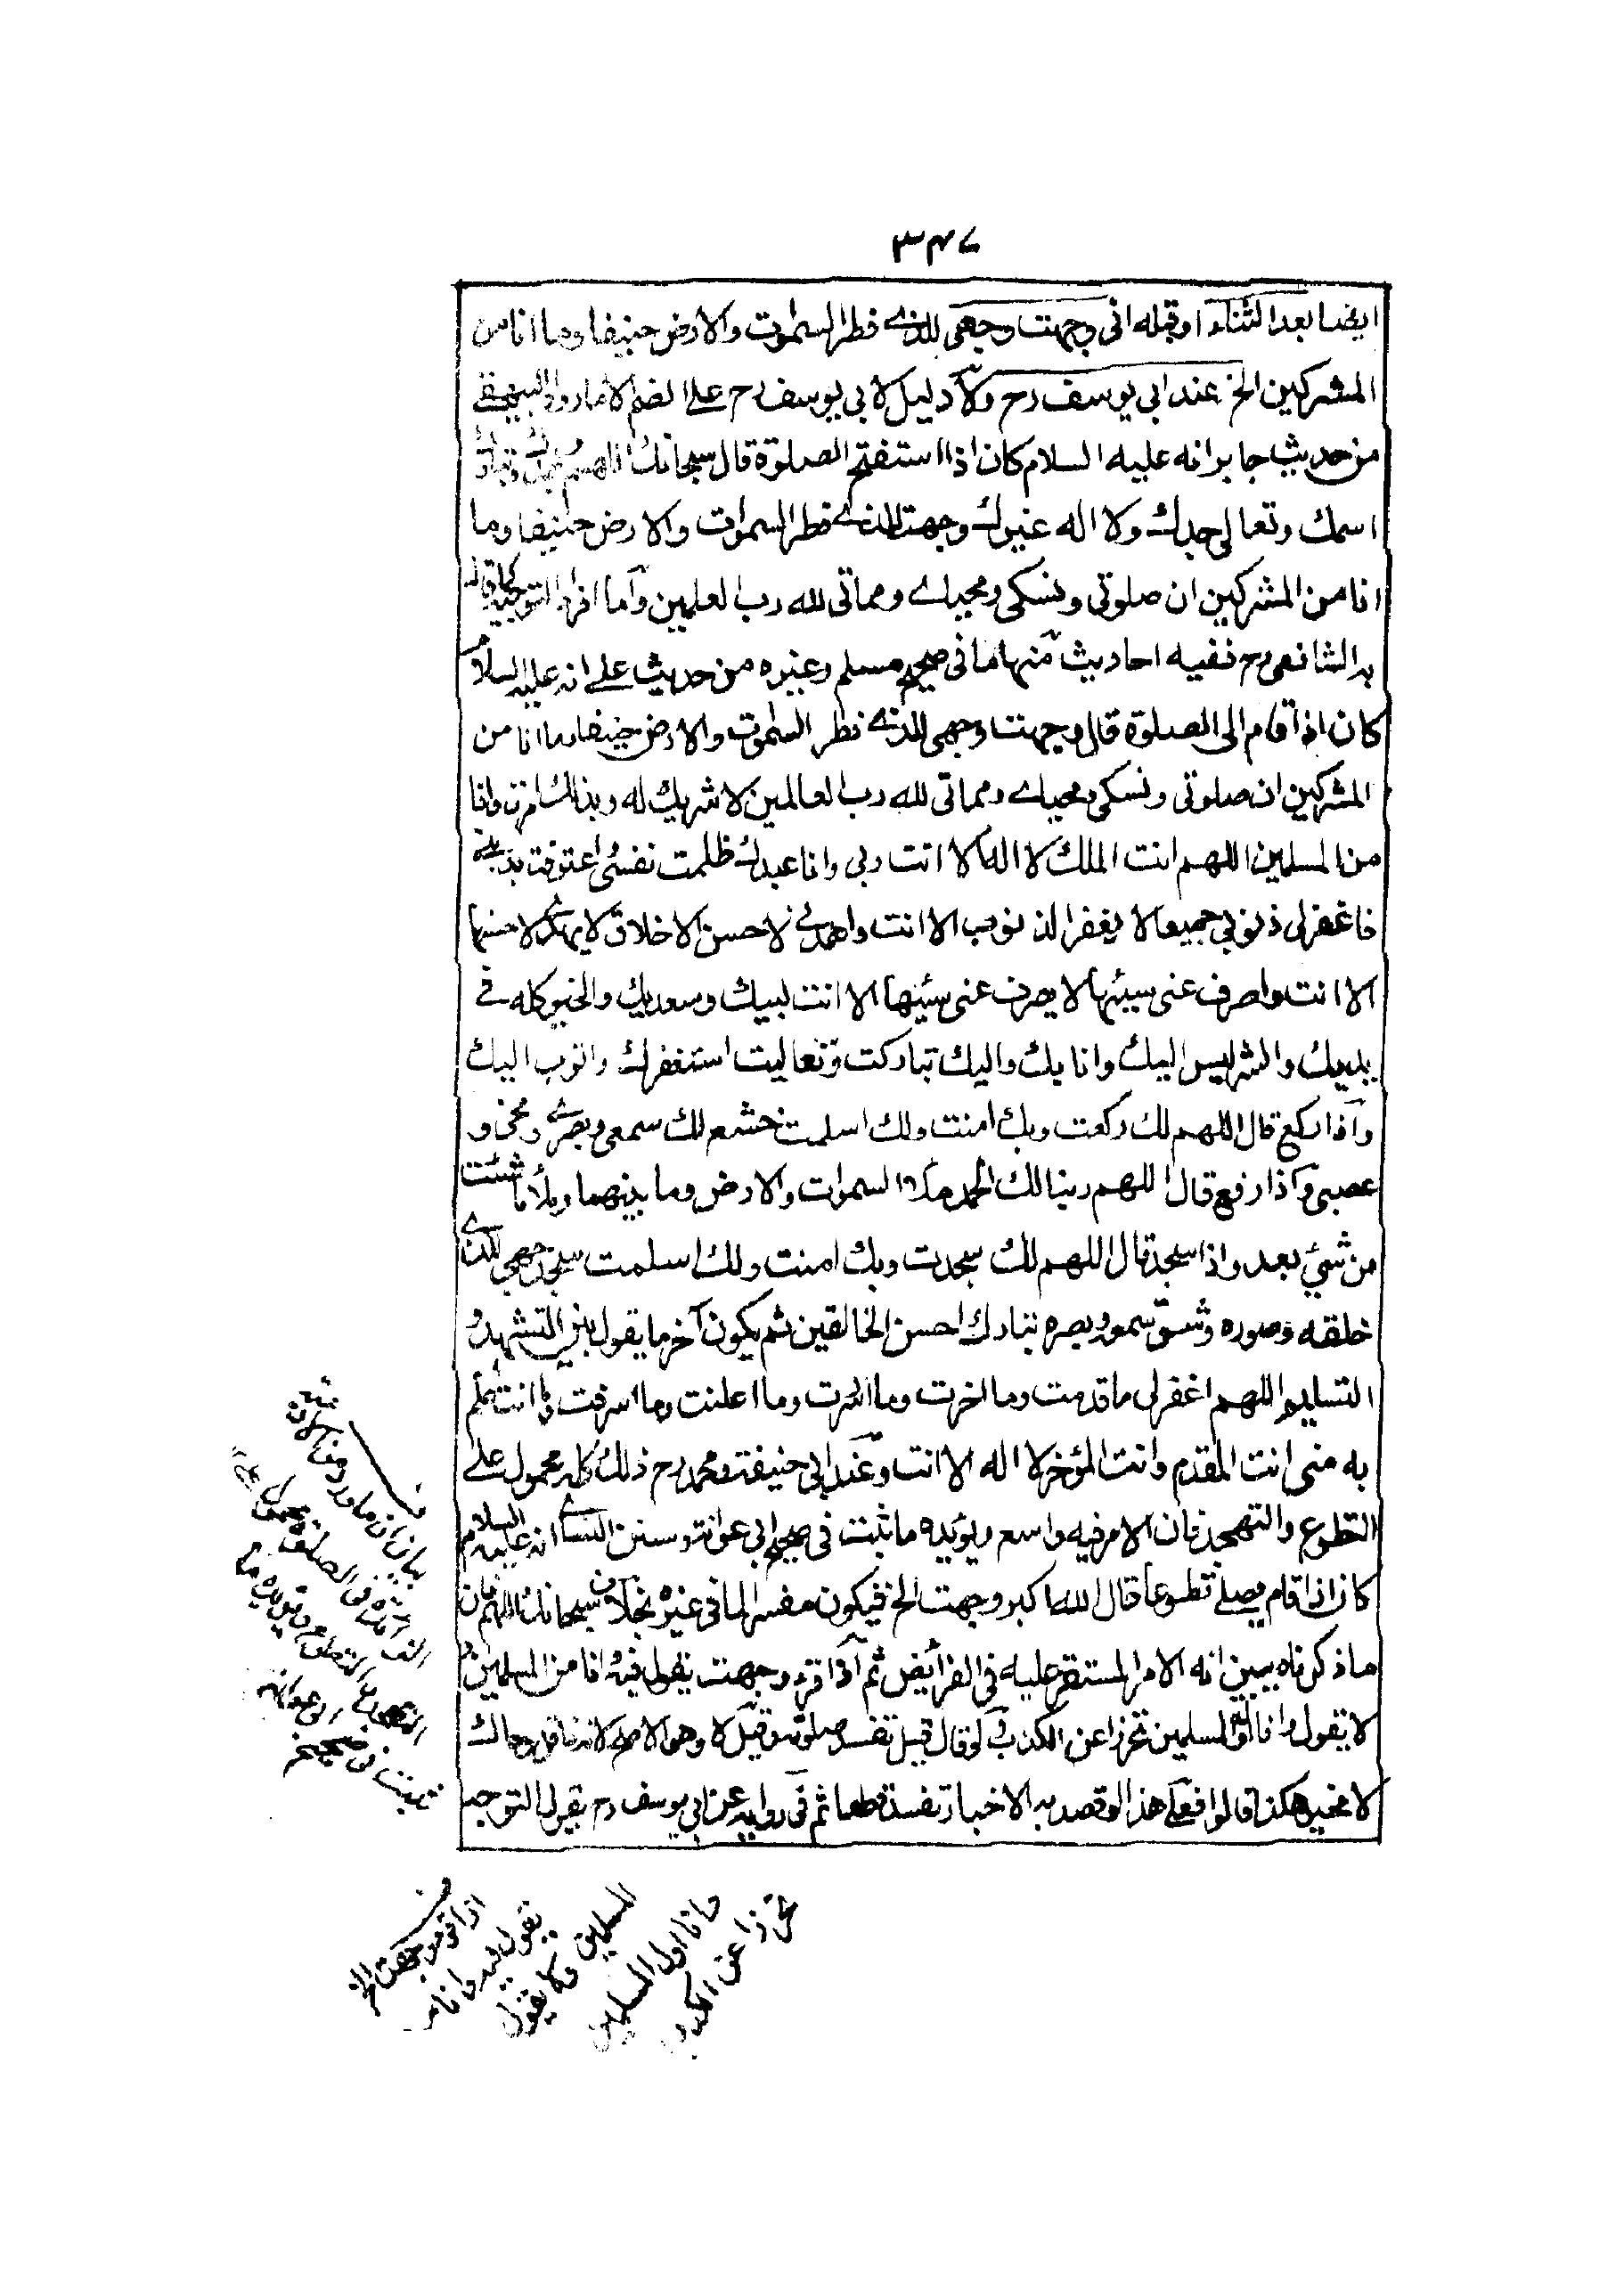 ۳۴۷
ايضا بعد الثناء او قبله انى وجهت وجهى للذے فطر السموات والارض حنيفا وما انا من
المشركين الخ عند ابى يوسف رح ولا دليل لابى يوسف رح على الضم الا ما رواه البيهقے
من حديث جابر انه عليه السلام كان اذا استفتح الصلوة قال سبحانك اللهم وبحمدك وتبارك
اسمك وتعالى جدك ولا اله غيرك وجهت للذے فطر السموات والارض حنيفا وما
انا من المشركين ان صلوتى ونسكى ومحياے ومماتى لله رب العلمين وأما افراد التوجيه كما قال
به الشافعى رح ففيه احاديث منها ما فى صحيح مسلم وغيره من حديث على انه عليه السلام
كان اذا قام الى الصلوة قال وجهت وجهى للذے فطر السموت والارض حنيفا وما انا من
المشركين ان صلوتى ونسكى ومحياے ومماتى لله رب العالمين لا شريك له وبذلك امرت وانا
من المسلمين اللهم انت الملك لا اله الا انت ربى وانا عبدك ظلمت نفسى اعترفت بذنبے
فاغفر لى ذنوبى جميعا لا يغفر الذنوب الا انت واهدنے لاحسن الاخلاق لا يهدے لاحسنها
الا انت واصرف عنى سيئها لا يصرف عنى سيئها الا انت لبيك وسعديك والخير كله فے
يديك والشر ليس اليك وانا بك واليك تباركت وتعاليت استغفرك واتوب اليك
وأذا ركع قال اللهم لك ركعت وبك امنت ولك اسلمت خشع لك سمعى وبصرے ومخى و
عصبى وأذا رفع قال اللهم ربنا لك الحمد ملأ السموات والارض وما بينهما وملأ ما شئت
من شىء بعد واذا سجد قال اللهم لك سجدت وبك امنت ولك اسلمت سجد وجهى للذے
خلقه وصوره وشق سمعه وبصره تبارك احسن الخالقين ثم يكون آخر ما يقول بين التشهد و
التسليم اللهم اغفر لى ما قدمت وما اخرت وما اسررت وما اعلنت وما اسرفت وما انت اعلم
به منى انت المقدم وانت المؤخر لا اله الا انت وعند ابى حنيفة ومحمد رح ذلك كله محمول على
التطوع والتهجد فان الامر فيه واسع ويؤيده ما ثبت فى صحيح ابى عوانة وسنن النسائے انه عليه السلام
كان اذا قام يصلے تطوعا قال الله اكبر وجهت الخ فيكون مفسرا لما فى غيره بخلاف سبحانك اللهم فان
ما ذكرناه يبين انه الامر المستقر عليه فى الفرائض ثم أذا قرء وجهت يقول فيه وانا من المسلمين و
لا يقول وانا اول المسلمين تحرزا عن الكذب فلو قال قيل تفسد صلوته وقيل لا وهو الاصح لانه ناقل وحاك
لا مخبر هكذا قالوا فعلے هذا لو قصد به الاخبار تفسد قطعا ثم فى رواية عن ابى يوسف رح يقول التوجه
بيان ان ما ورد
الصلوة محمول على
التطوع ويؤيده ما
ثبت فى صحيح
ابى عوانة
اذا قرء وجهت الخ
يقول فيه وانا من
المسلمين ولا يقول
وانا اول المسلمين
تحرزا عن الكذب